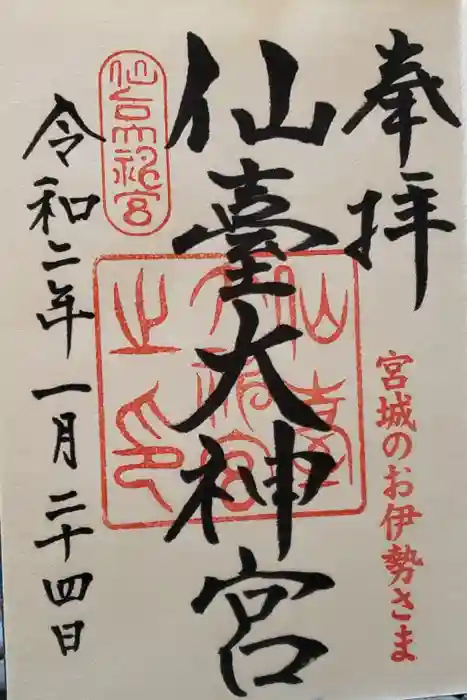 奉拝
宮城のお伊勢さま
仙臺大神宮
仙台大神宮
仙臺
大神宮
之印
令和二年一月二十四日